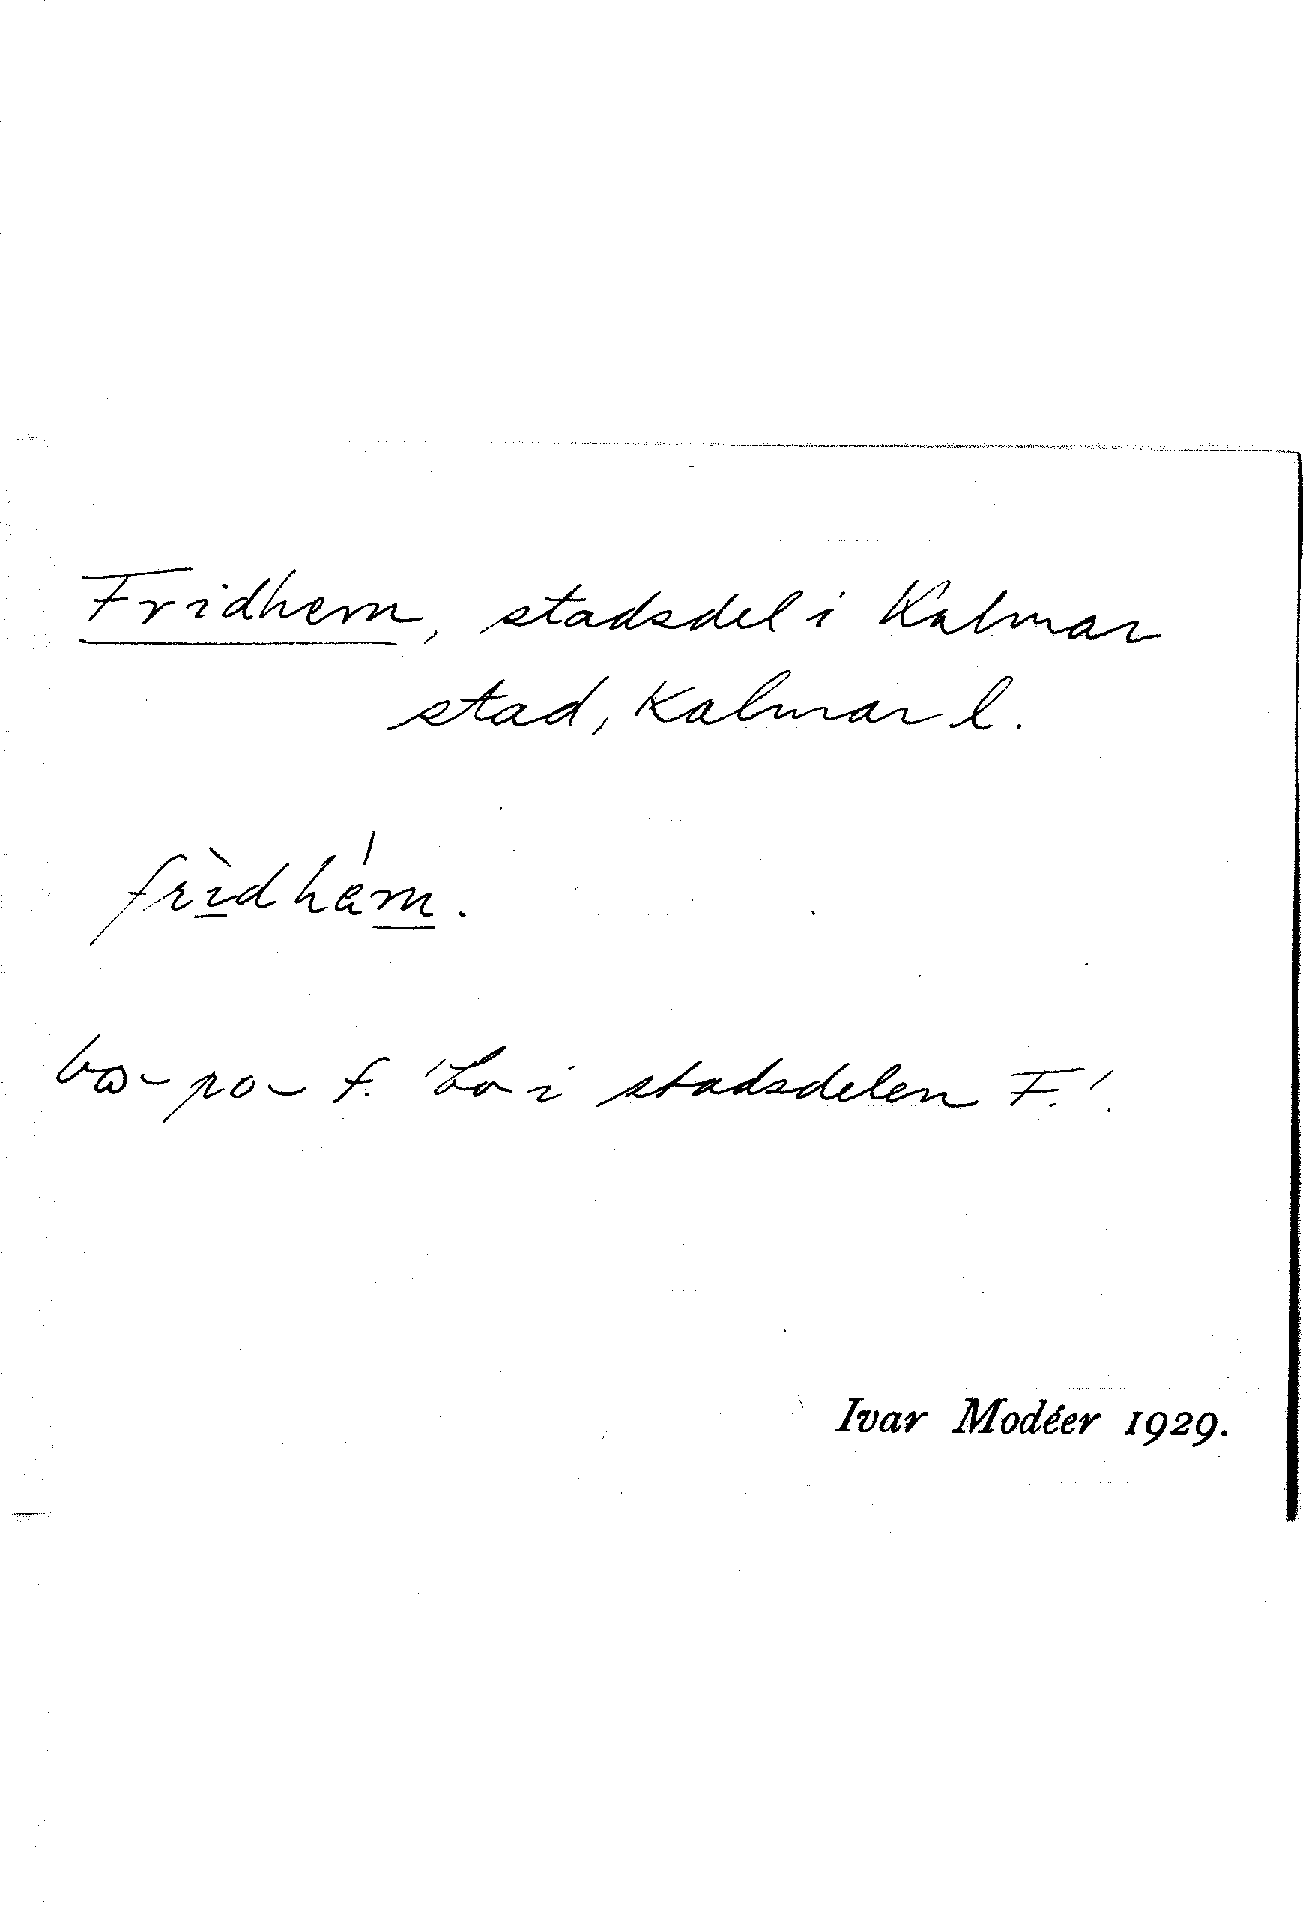 Fridhem, stadsdel i Kalmar
stad, Kalmar l.
frìdhém.
bo po f. 'bo i stadsdelen F.'.
Ivar Modéer 1929.